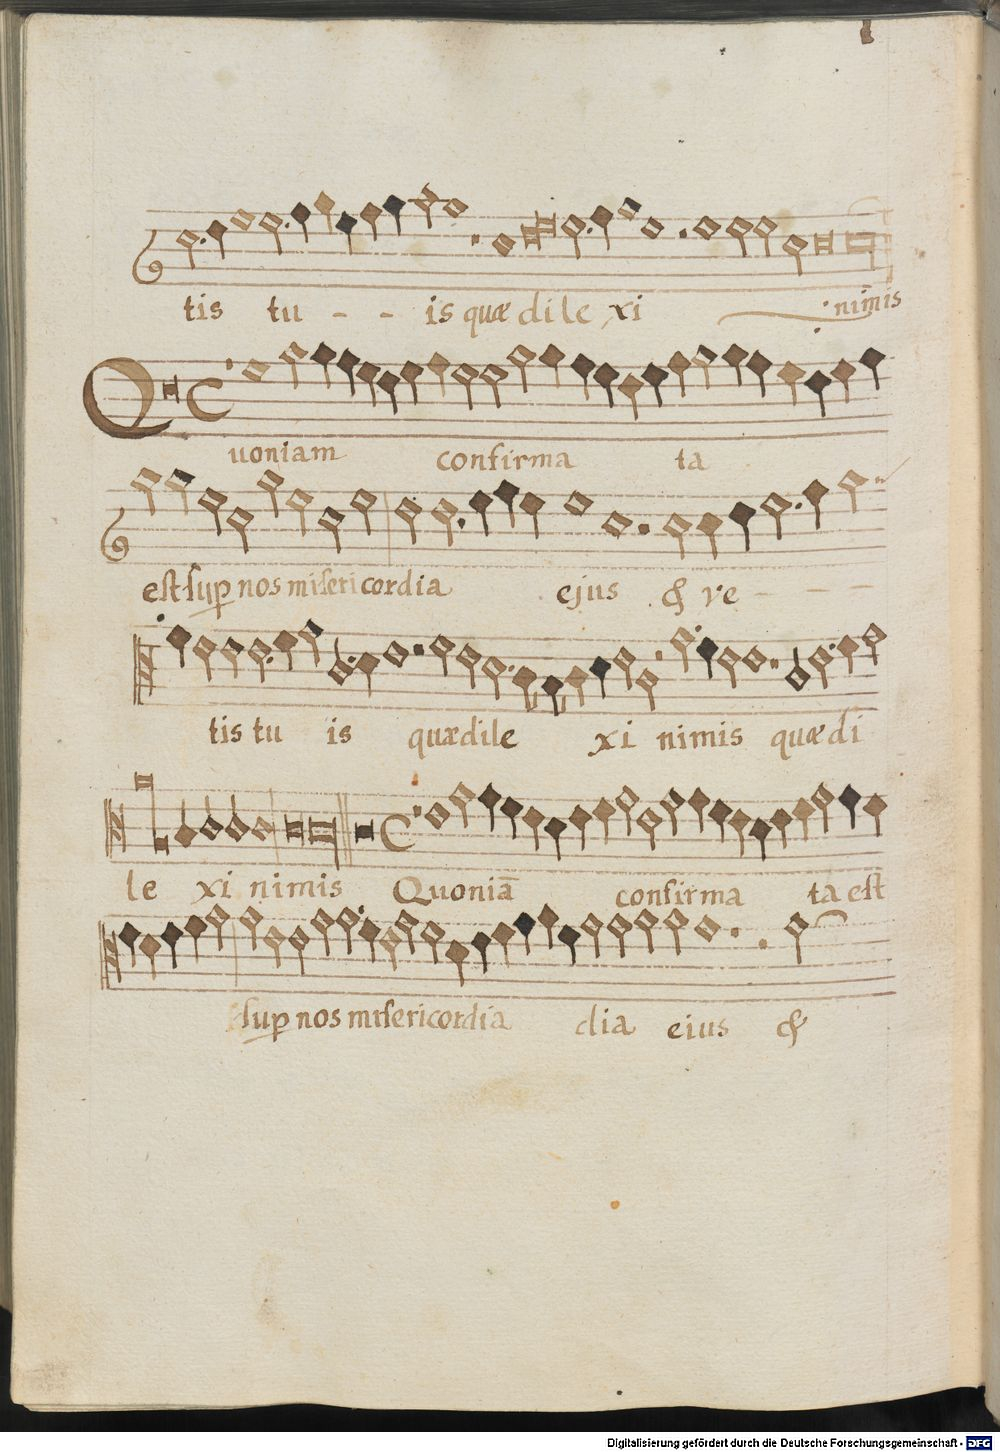 tis tu - - is quæ dile xi nimis
Quoniam confirma ta
est sup nos misericordia ejus & ve - - -
tis tu is quædile xi nimis quædi
le xi nimis Quoniā confirma ta est
sup nos misericordia dia eius &
Digitalisierung gefördert durch die Deutsche Forschungsgemeinschaft - DFG